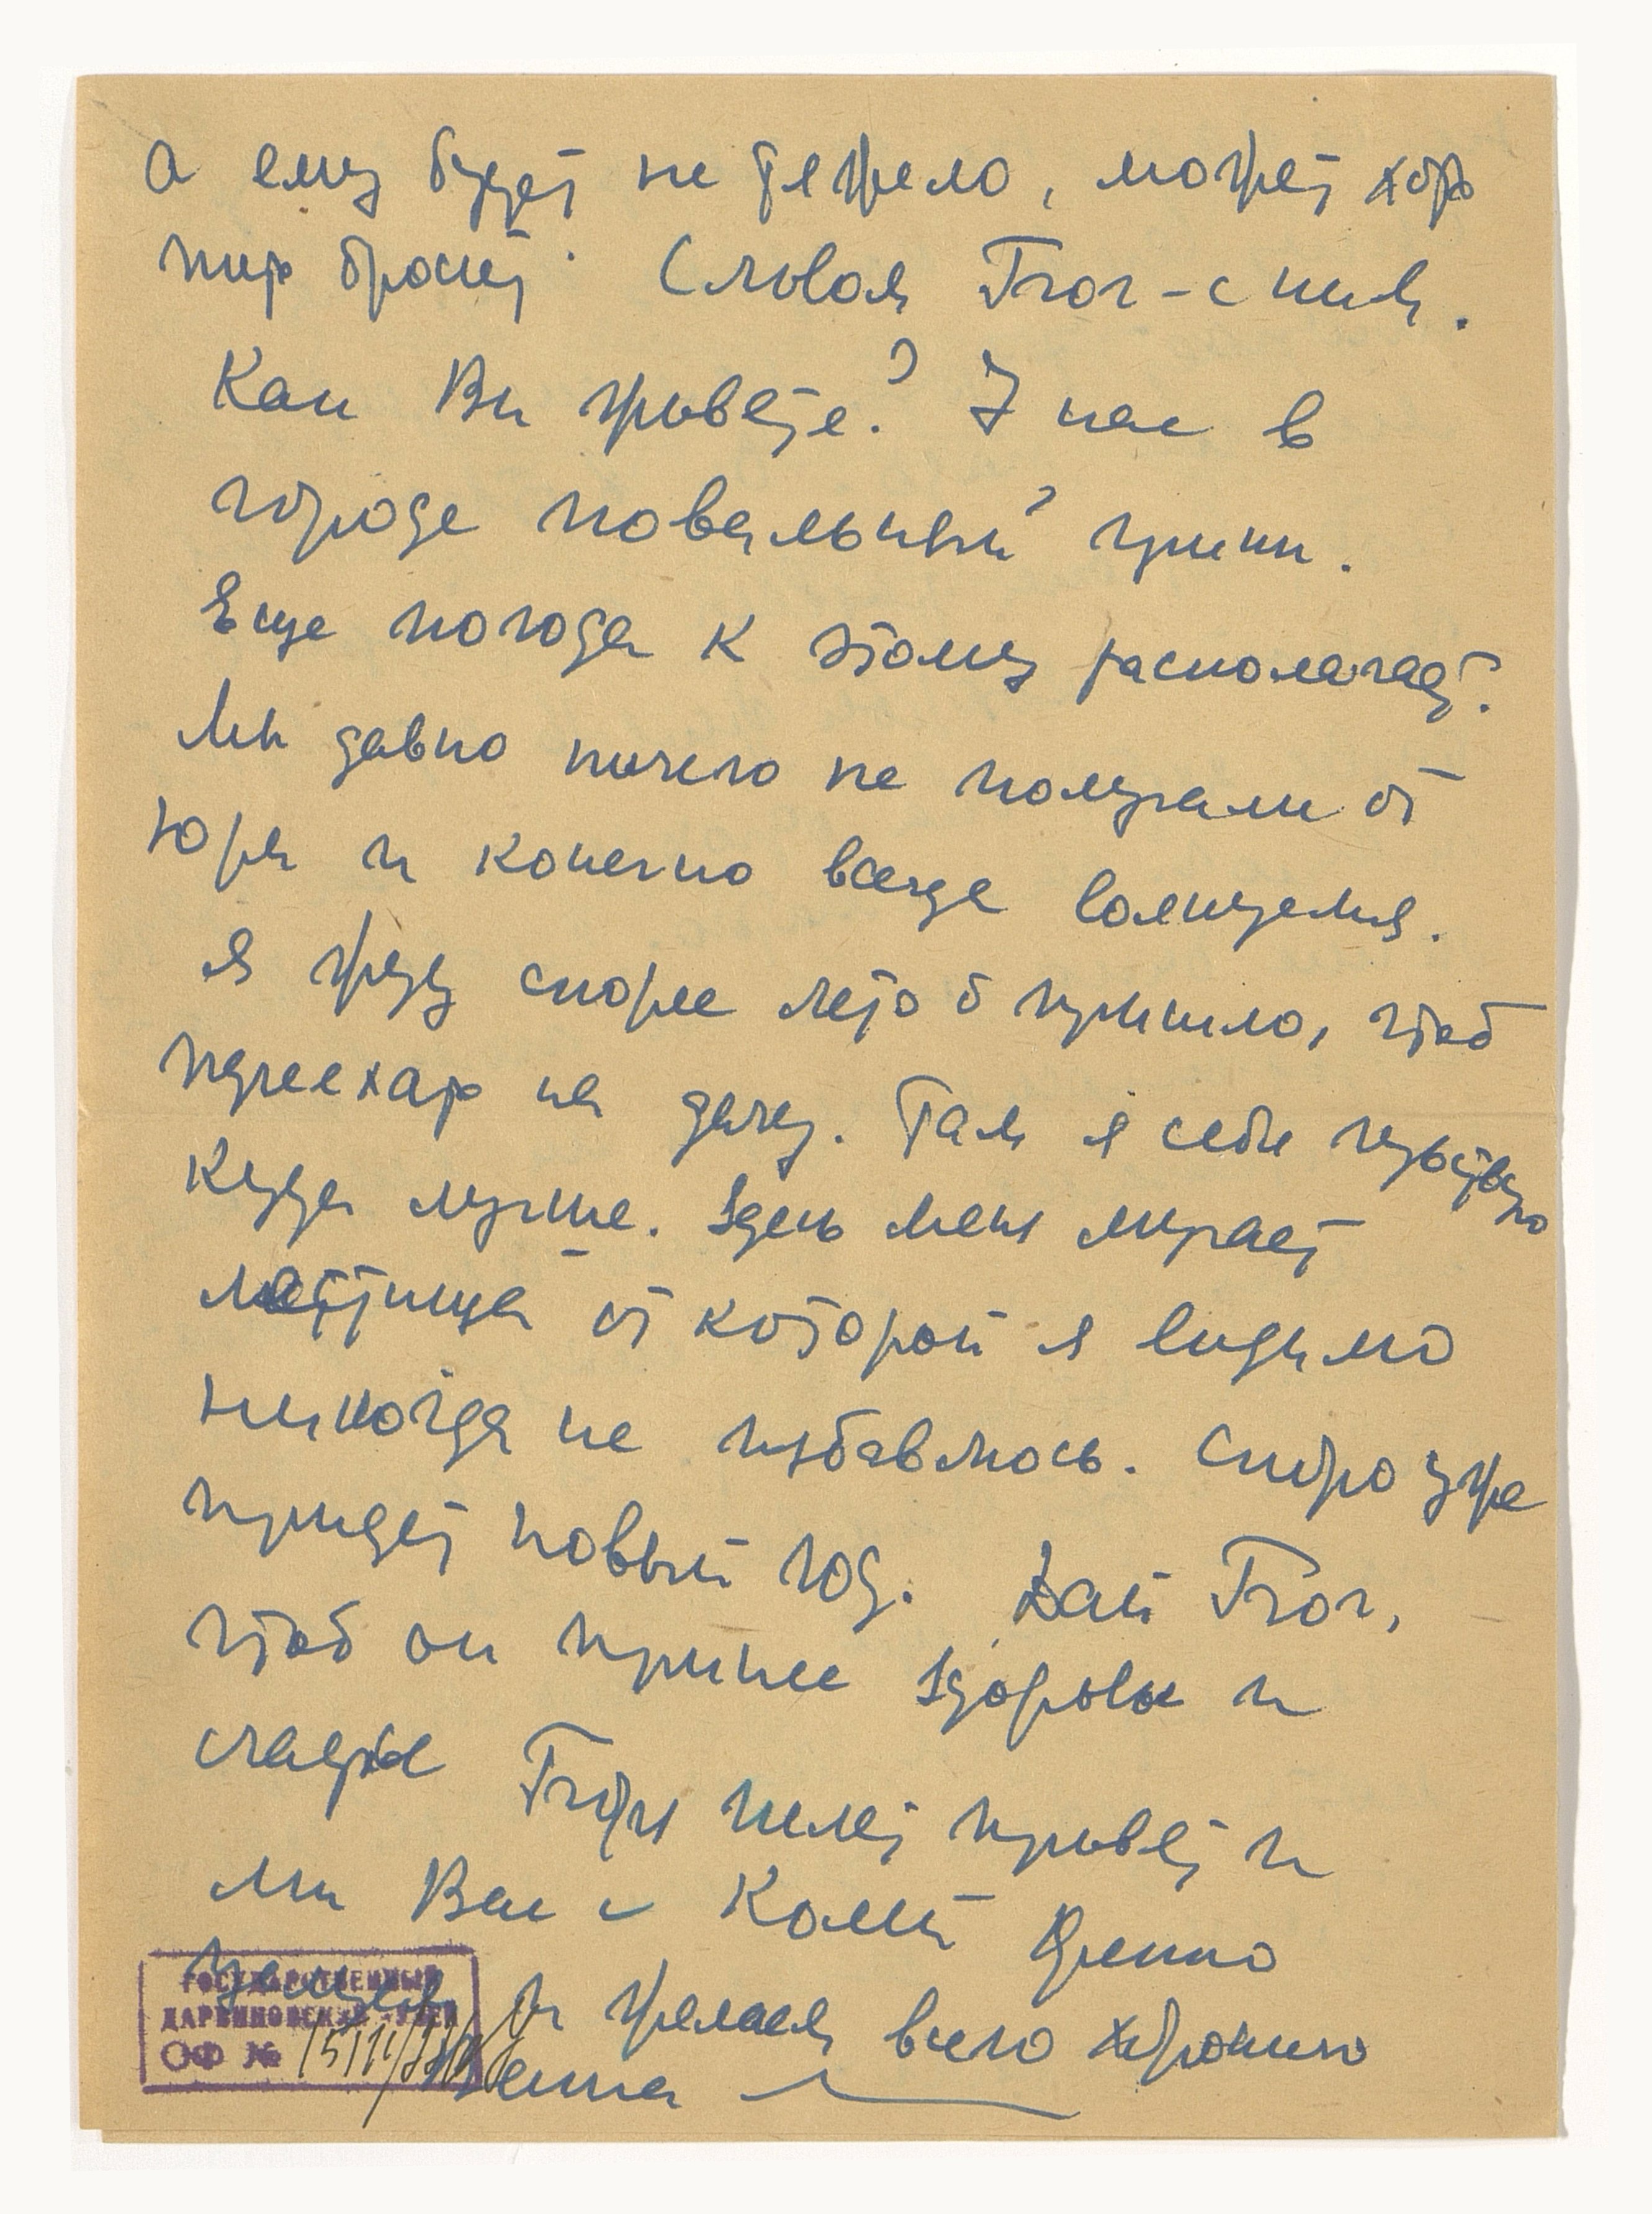 а ему будет не тяжело, может хоть
пить бросит. Словом Бог - с ним.
Как Вы живете? У нас в
городе повальный грипп.
Еще погода к этому располагает.
Мы давно ничего не получали от
Юры и конечно всегда волнуемся.
Я жду скорее лето б пришло, чтоб
переехать на дачу. Там я себя чувствую
куда лучше. Здесь меня мучает
лестница от которой я видимо
никогда не избавлюсь. Скоро уже
придет новый год. Дай Бог,
чтоб он принес здоровье и
счастье шлет привет и
мы Вас с Колей крепко
целуем и желаем всего хорошего
ГОСУДАРСТВЕННЫЙ
ДАРВИНОВСКИЙ МУЗЕЙ
ОФ №